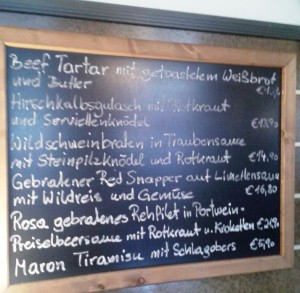 Beef Tartar mit getoastetem Weißbrot
und Butter
Hirschkalbsgulasch mit Rotkraut
und Serviettenknödel €13,90
Wildschweinbraten in Traubensauce
mit Steinpilzknödel und Rotkraut €14,90
Gebratener Red Snapper auf Limettensauce
mit Wildreis und Gemüse €16,80
Rosa gebratenes Rehfilet in Portwein-
Preiselbeersauce mit Rotkraut u. Kroketten
Maron Tiramisu mit Schlagobers €5,90